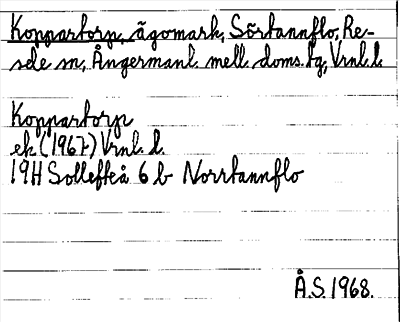 Koppartorp, ägomark, Sörtannflo, Re-
sele sn, Ångermanl. mell. doms. tg, Vrnl. l.
Koppartorp
ek (1967) Vrnl. l.
19H Sollefteå 6 b Norrtannflo
Å.S. 1968.